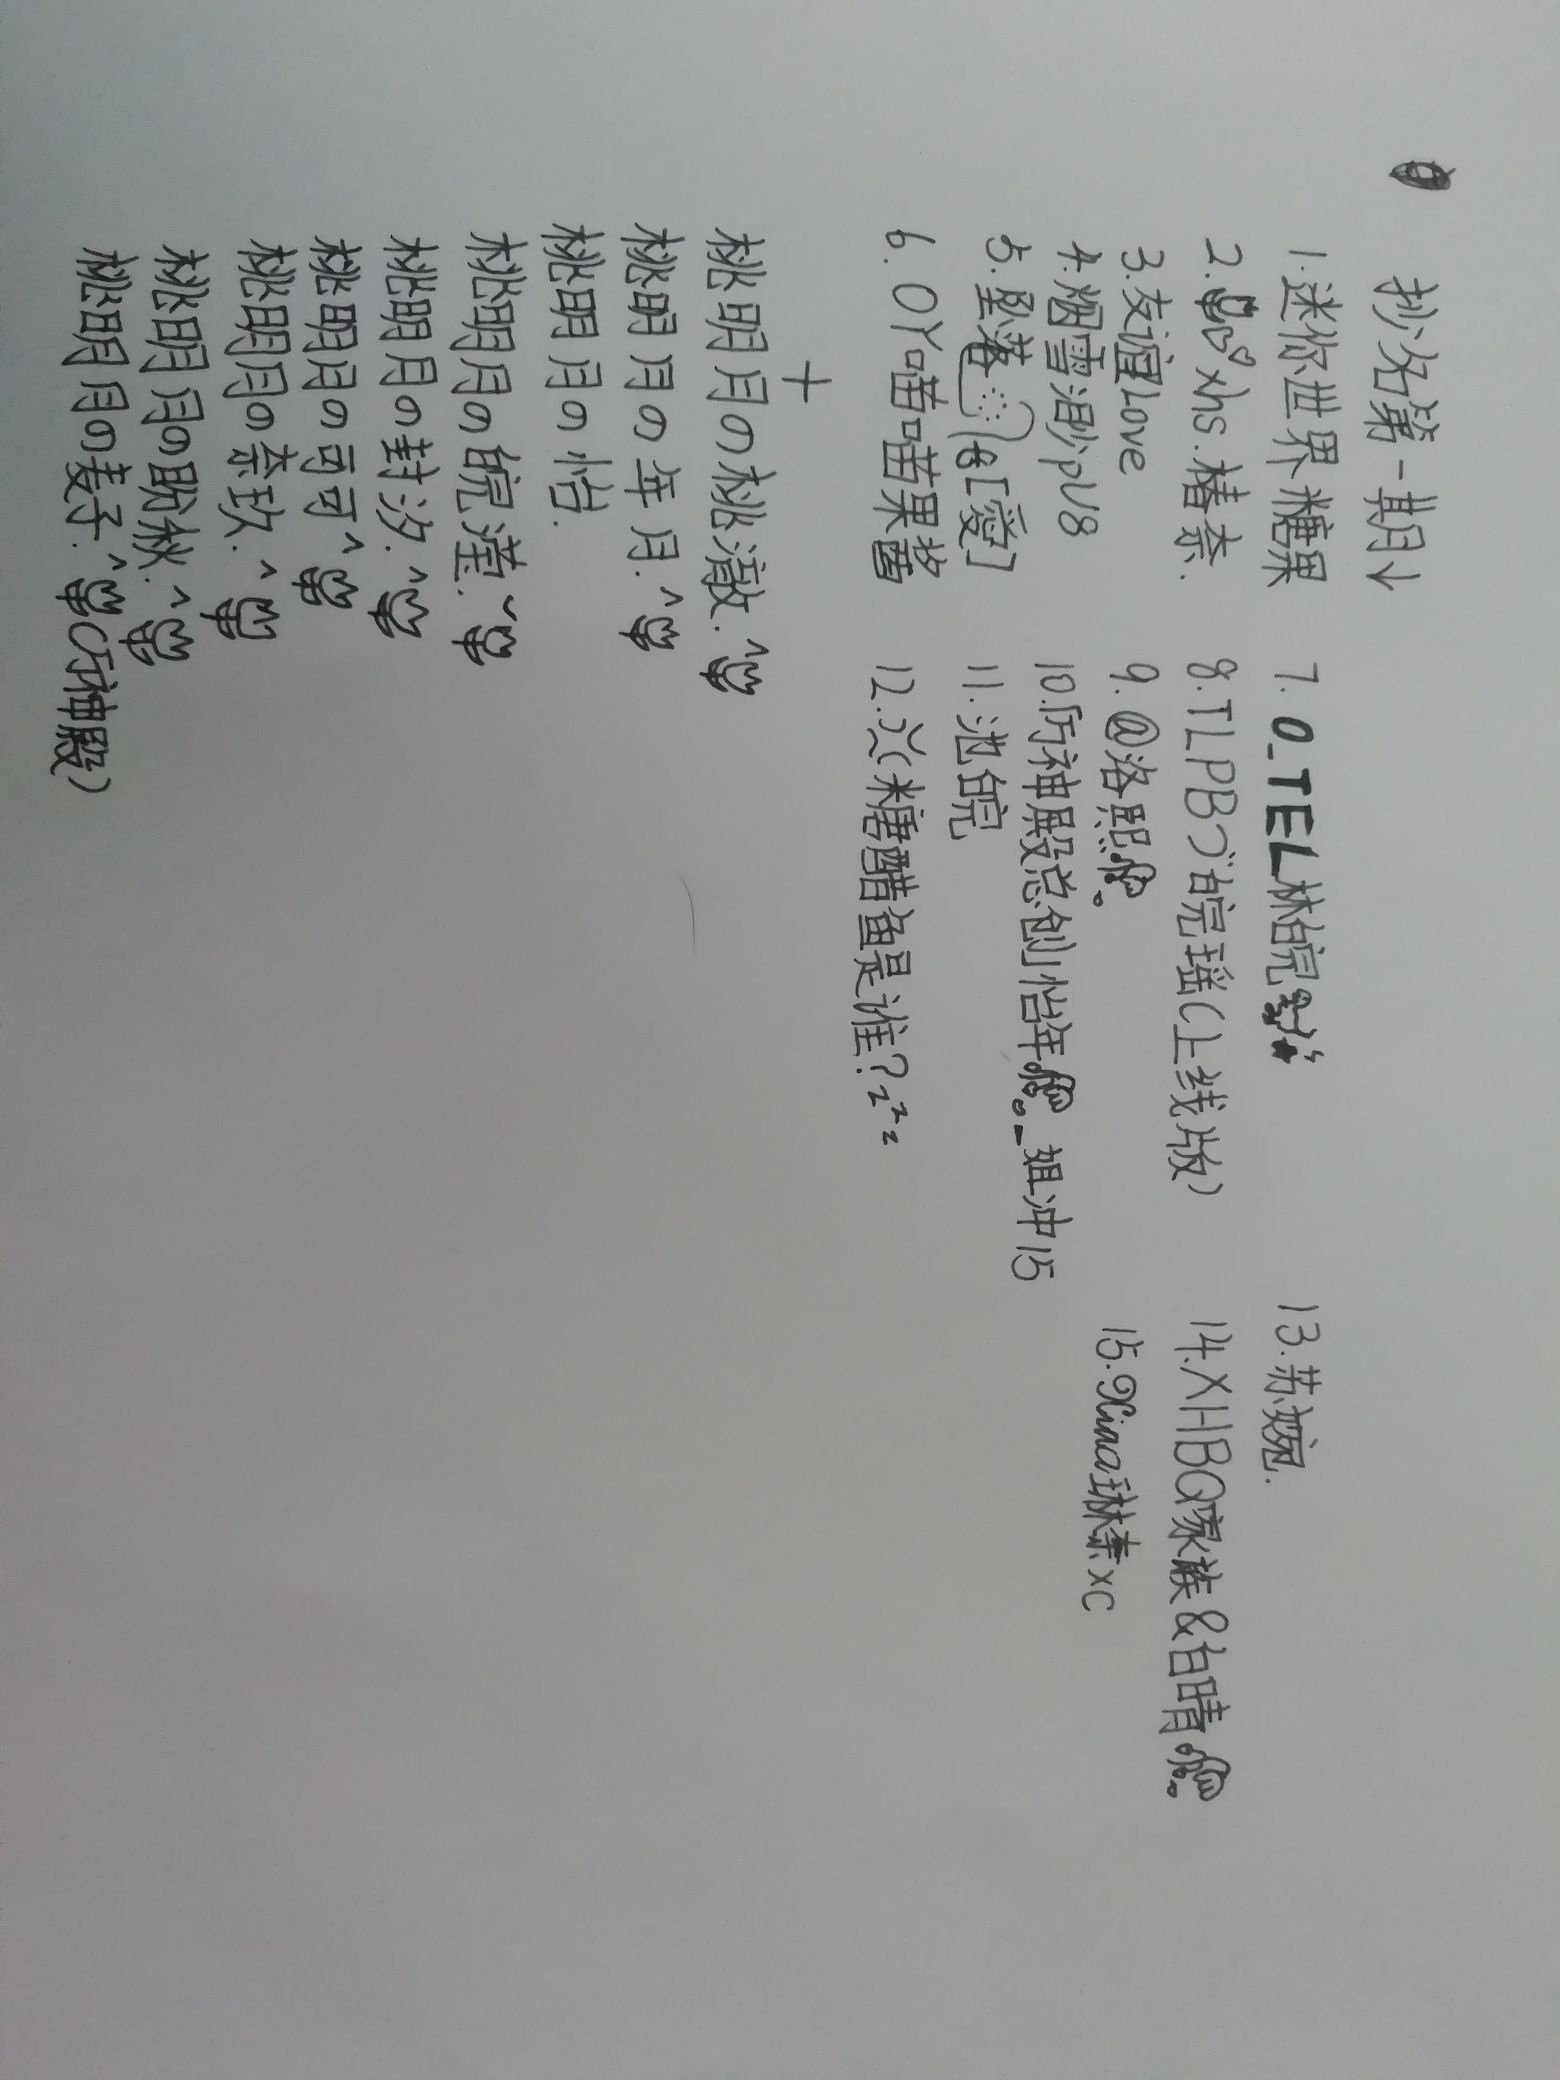 抄名第一期↓
1.迷你世界糖果
2.xhs.椿奈.
3.友谊Love
4.烟雪渺pU8
5.坠落 [爱]
6.OY喵喵果酱
7.O_TEL林皖
8.TLPBづ皖瑶(上线版)
9.@洛熙
10.厉神殿总创怡年_姐冲15
11.池皖
12.(糖醋鱼是谁?zzz
13.苏婉.
14.XHBQ家族&白晴
15.Xina琳柰xc
+
桃明月の桃澈.^
桃明月の年月.^
桃明月の怡.
桃明月の皖滢.
桃明月の封汐.^
桃明月の可可^
桃明月の奈玖.^
桃明月の盼秋.^
桃明月の麦子.^(厉神殿)